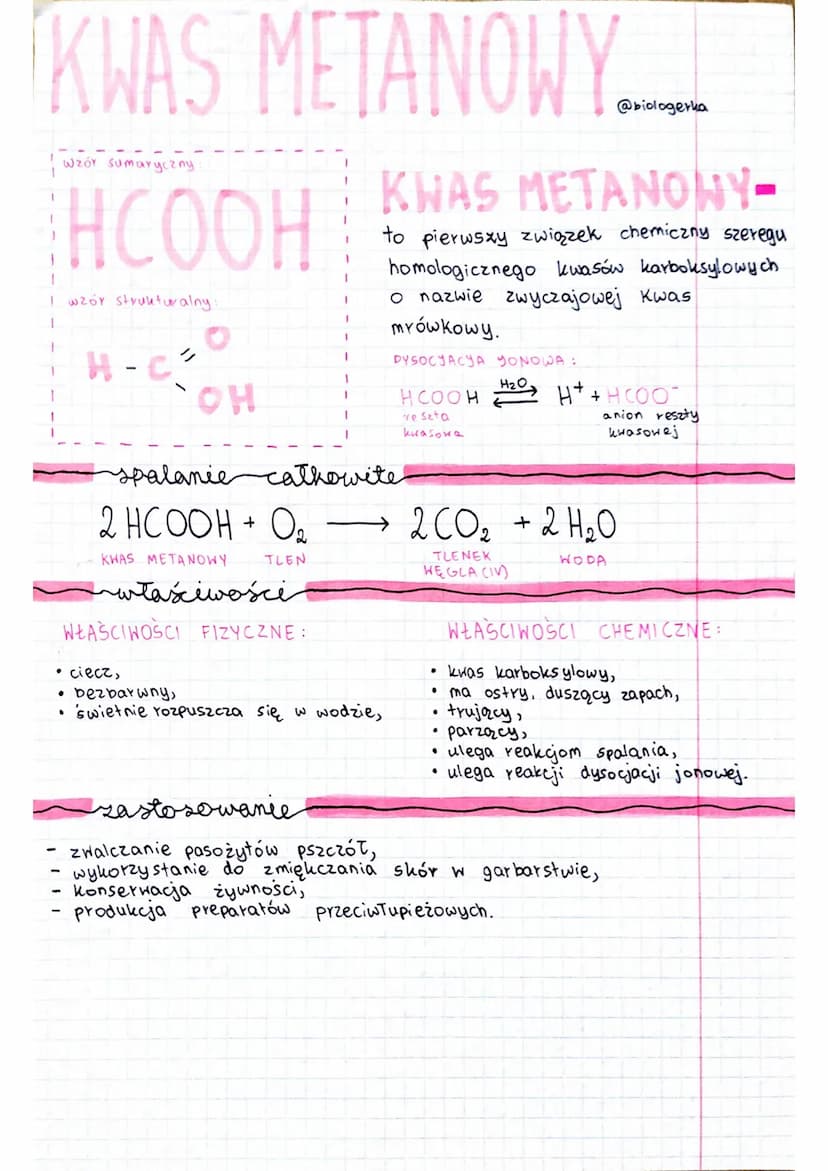 KWAS METANOWY
@biologerka
wzór sumaryczny:
HCOOH
wzór strukturalny:
H - C = O
\ OH
KWAS METANOWY-
to pierwszy związek chemiczny szeregu
homologicznego kwasów karboksylowych
o nazwie zwyczajowej kwas
mrówkowy.
DYSOCJACJA JONOWA :
HCOOH ⇌ H₂O H⁺ + HCOO⁻
reszta
kwasowa
anion reszty
kwasowej
spalanie całkowite
2 HCOOH + O₂ ⟶ 2 CO₂ + 2 H₂O
KWAS METANOWY TLEN TLENEK WĘGLA (IV) WODA
właściwości
WŁAŚCIWOŚCI FIZYCZNE :
• ciecz,
• bezbarwny,
• świetnie rozpuszcza się w wodzie,
WŁAŚCIWOŚCI CHEMICZNE:
• kwas karboksylowy,
• ma ostry, duszący zapach,
• trujący,
• parzący,
• ulega reakcjom spalania,
• ulega reakcji dysocjacji jonowej.
zastosowanie
- zwalczanie pasożytów pszczół,
- wykorzystanie do zmiękczania skór w garbarstwie,
- konserwacja żywności,
- produkcja preparatów przeciwłupieżowych.